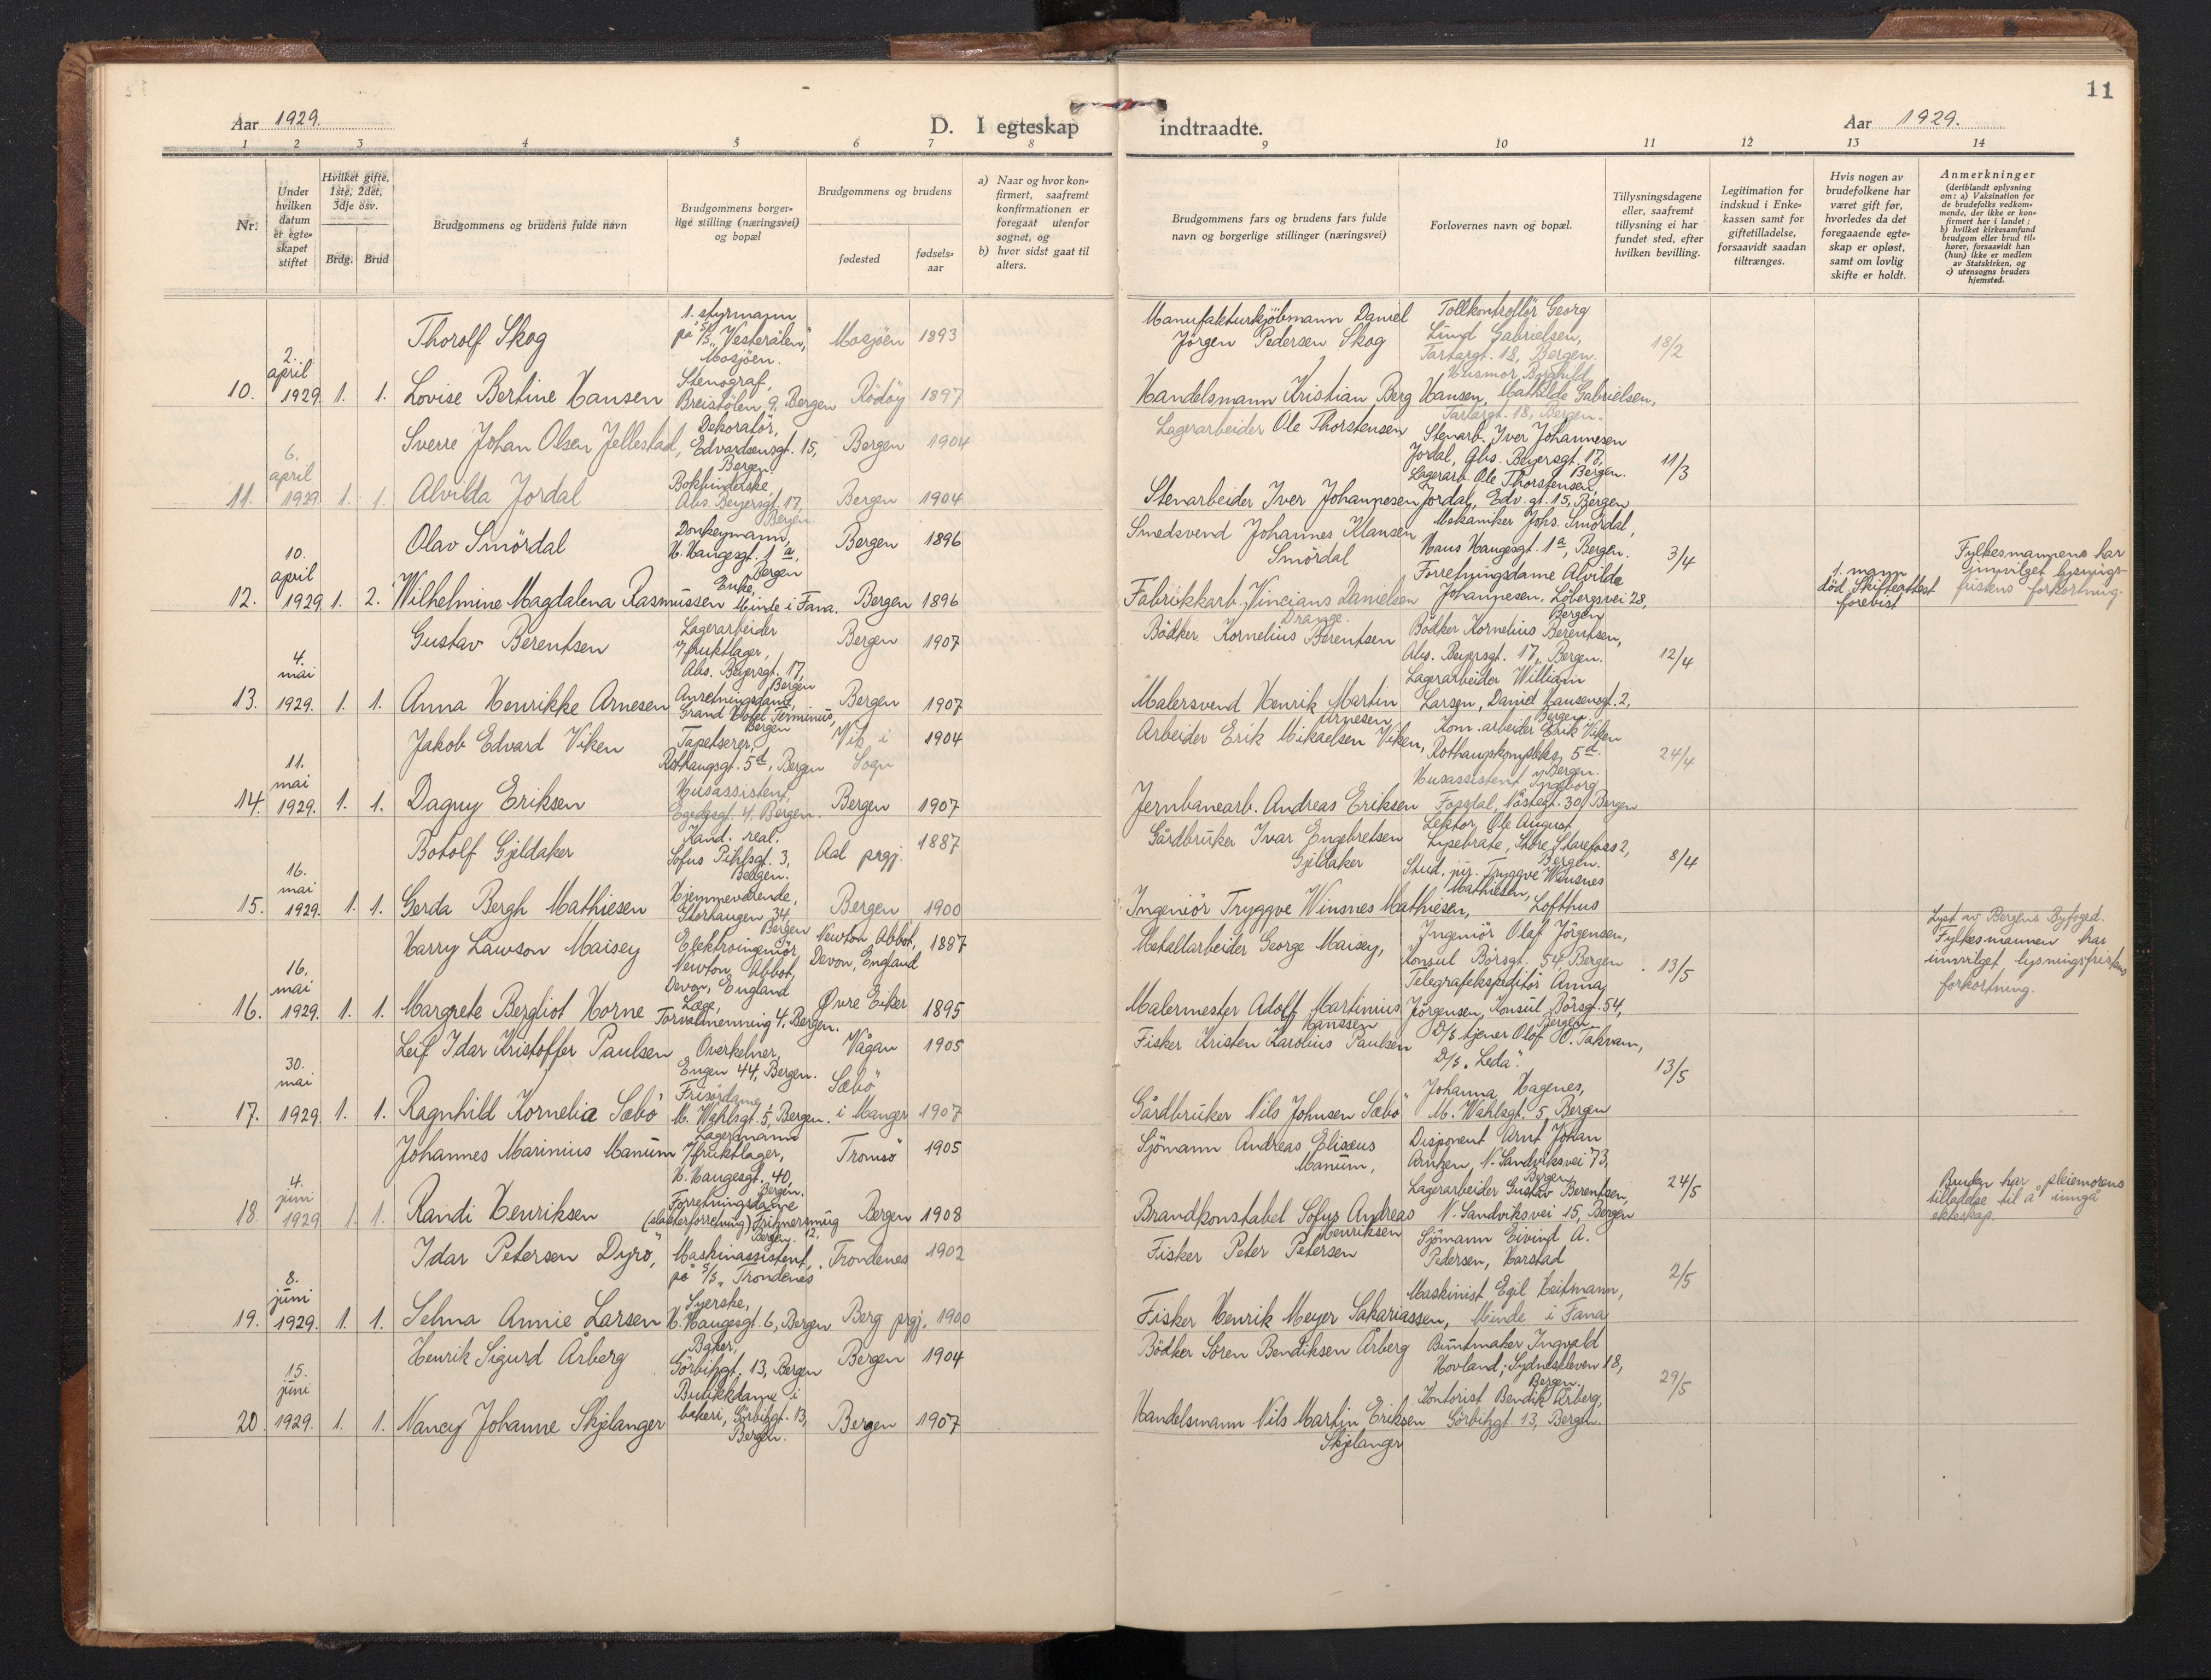 11
Aar 1929.
D. I egteskap indtraadte.
Aar 1929.
1 2 3 4 5 6 7 8 9 10 11 12 13 14
Nr.
Under hvilken datum er egteskapet stiftet
Hvilket gifte, 1ste, 2det, 3dje osv.
Brdg. Brud
Brudgommens og brudens fulde navn
Brudgommens borgerlige stilling (næringsvei) og bopæl
Brudgommens og brudens
fødested
fødselsaar
a) Naar og hvor konfirmert, saafremt konfirmationen er foregaat utenfor sognet, og
b) hvor sidst gaat til alters.
Brudgommens fars og brudens fars fulde navn og borgerlige stillinger (næringsvei)
Forlovernes navn og bopæl.
Tillysningsdagene eller, saafremt tillysning ei har fundet sted, efter hvilken bevilling.
Legitimation for indskud i Enkekassen samt for giftetilladelse, forsaavidt saadan tiltrænges.
Hvis nogen av brudefolkene har været gift før, hvorledes da det foregaaende egteskap er opløst, samt om lovlig skifte er holdt.
Anmerkninger
(deriblandt oplysning om: a) Vaksination for de brudefolks vedkommende, der ikke er konfirmert her i landet; b) hvilket kirkesamfund brudgom eller brud tilhører, forsaavidt han (hun) ikke er medlem av Statskirken, og c) utensogns bruders hjemsted.
10. 2. april 1929. 1. 1.
Thorolf Skog
1. styrmann på S/S „Vesterålen", Mosjöen.
Mosjöen 1893
Manufakturkjöbmann Daniel Jörgen Pedersen Skog
Tollkontrollör Georg Lund Gabrielsen, Tartargt. 18, Bergen.
18/2
Lovise Bertine Hansen
Stenograf, Breistölen 9, Bergen
Rödöy 1897
Handelsmann Kristian Berg Hansen,
Husmor Borghild Mathilde Gabrielsen, Tartargt. 18, Bergen.
11. 6. april 1929 1. 1.
Sverre Johan Olsen Jellestad,
Dekoratör, Edvardsensgt. 15, Bergen
Bergen 1904
Lagerarbeider Ole Thorstensen
Stenarb. Iver Johannesen Jordal, Abs. Beyersgt. 17, Bergen.
11/3
Alvilda Jordal
Bokbinderske, Abs. Beyersgt. 17, Bergen
Bergen 1904
Stenarbeider Iver Johannesen Jordal,
Lagerarb. Ole Thorstensen, Edv. gt. 15, Bergen
12. 10. april 1929 1. 2.
Olav Smördal
Donkeymann, H. Haugesgt. 1 a, Bergen
Bergen 1896
Smedsvend Johannes Klausen Smördal
Mekaniker Johs. Smördal, Haus Haugesgt. 1a, Bergen.
3/4
Wilhelmine Magdalena Rasmussen
Enke, Minde i Fana.
Bergen 1896
Fabrikkarb. Vincians Danielsen Drange.
Forretningsdame Alvilde Johannesen, Löbergsvei 28, Bergen
1. mann död, Skifteattest forevist
Fylkesmannen har innvilget lysningsfristens forkortning.
13. 4. mai 1929. 1. 1.
Gustav Berentsen
Lagerarbeider i fruktlager, Abs. Beyersgt. 17, Bergen
Bergen 1907
Bödker Kornelius Berentsen
Bödker Kornelius Berentsen, Abs. Beyersgt. 17, Bergen.
12/4
Anna Henrikke Arnesen
Anretningsdame, Grand Hotel Terminus, Bergen
Bergen 1907
Malersvend Henrik Martin Arnesen
Lagerarbeider William Larsen, Daniel Hansensgt. 2, Bergen.
14. 11. mai 1929. 1. 1.
Jakob Edvard Viken
Tapetserer, Rothaugsgt. 5d, Bergen
Vik i Sogn 1904
Arbeider Erik Mikaelsen Viken,
Kom. arbeider Erik Viken Rothaugskompleks, 5d. Bergen.
24/4
Dagny Eriksen
Husassistent, Egedsgt. 4, Bergen.
Bergen 1907
Jernbanearb. Andreas Eriksen
Husassistent Ingeborg Fossdal, Nöstegt. 30, Bergen
15. 16. mai 1929. 1. 1.
Botolf Gjeldaker
Kand. real. Sofus Pihlsgt. 3, Bergen.
Aal prgj. 1887
Gårdbruker Ivar Engebretsen Gjeldaker
Lektor Ole August Lysebrate, Store Starefoss 2, Bergen.
8/4
Gerda Bergh Mathiesen
Hjemmeværende, Storhaugen 34, Bergen
Bergen 1900
Ingeniör Tryggve Winsnes Mathiesen,
Stud. jur. Tryggve Winsnes Mathiesen, Lofthus
16. 16. mai 1929. 1. 1.
Harry Lawson Maisey
Elektroingeniör, Newton Abbot, Devon, England
Newton Abbot, Devon, England 1887
Metallarbeider George Maisey,
Ingeniör Olaf Jörgensen, Konsul Börsgt. 54 Bergen
13/5
Lyst av Bergens Byfoged. Fylkesmannen har innvilget lysningsfristens forkortning.
Margrete Bergliot Horne
Læge, Torvalmenning 4, Bergen.
Øvre Eiker 1895
Malermester Adolf Martinius Hanssen
Telegrafekspeditör Anna Jörgensen, Konsul Börsgt. 54, Bergen
17. 30. mai 1929. 1. 1.
Leif Idar Kristoffer Paulsen
Overkelner, Engen 44, Bergen.
Vågan 1905
Fisker Kristen Karolius Paulsen
D/S tjener Olof O. Takvam, D/S „Leda".
13/5
Ragnhild Kornelia Sæbö
Frisördame, M. Wahlsgt. 5, Bergen.
Sæbö i Manger 1907
Gårdbruker Nils Johnsen Sæbö
Johanna Hagenes, M. Wahlsgt. 5, Bergen
18. 4. juni 1929 1. 1.
Johannes Marinius Manum
Lagermann i fruktlager, H. Haugesgt. 40, Bergen.
Tromsö 1905
Sjömann Andreas Eliseus Manum,
Disponent Arnt Johan Arntzen, N. Sandviksvei 73, Bergen
24/5
Randi Henriksen
Forretningsdame (slakterforretning) Fritznersmug 12, Bergen.
Bergen 1908
Brandkonstabel Sofus Andreas Henriksen
Lagerarbeider Gustav Berentsen, N. Sandviksvei 15, Bergen
Bruden har pleiemorens tilladelse til å inngå ekteskap.
19. 8. juni 1929. 1. 1.
Idar Petersen Dyrö,
Maskinassistent, på S/S „Trondenes
Trondenes 1902
Fisker Peter Petersen
Sjömann Eivind A. Pedersen, Harstad
2/5
Selma Annie Larsen
Syerske, H. Haugesgt. 6, Bergen
Berg prgj. 1900
Fisker Henrik Meyer Sakariassen,
Maskinist Egil Heitmann, Minde i Fana
20. 15. juni 1929. 1. 1.
Henrik Sigurd Årberg
Baker, Görbitzgt. 13, Bergen
Bergen 1904
Bödker Sören Bendiksen Årberg
Buntmaker Ingvald Hovland, Sydneskleven 18, Bergen.
29/5
Nancy Johanne Skjelanger
Butikkdame i bakeri, Görbitzgt. 13, Bergen.
Bergen 1907
Handelsmann Nils Martin Eriksen Skjelanger
Kontorist Bendik Årberg, Görbitzgt. 13, Bergen.